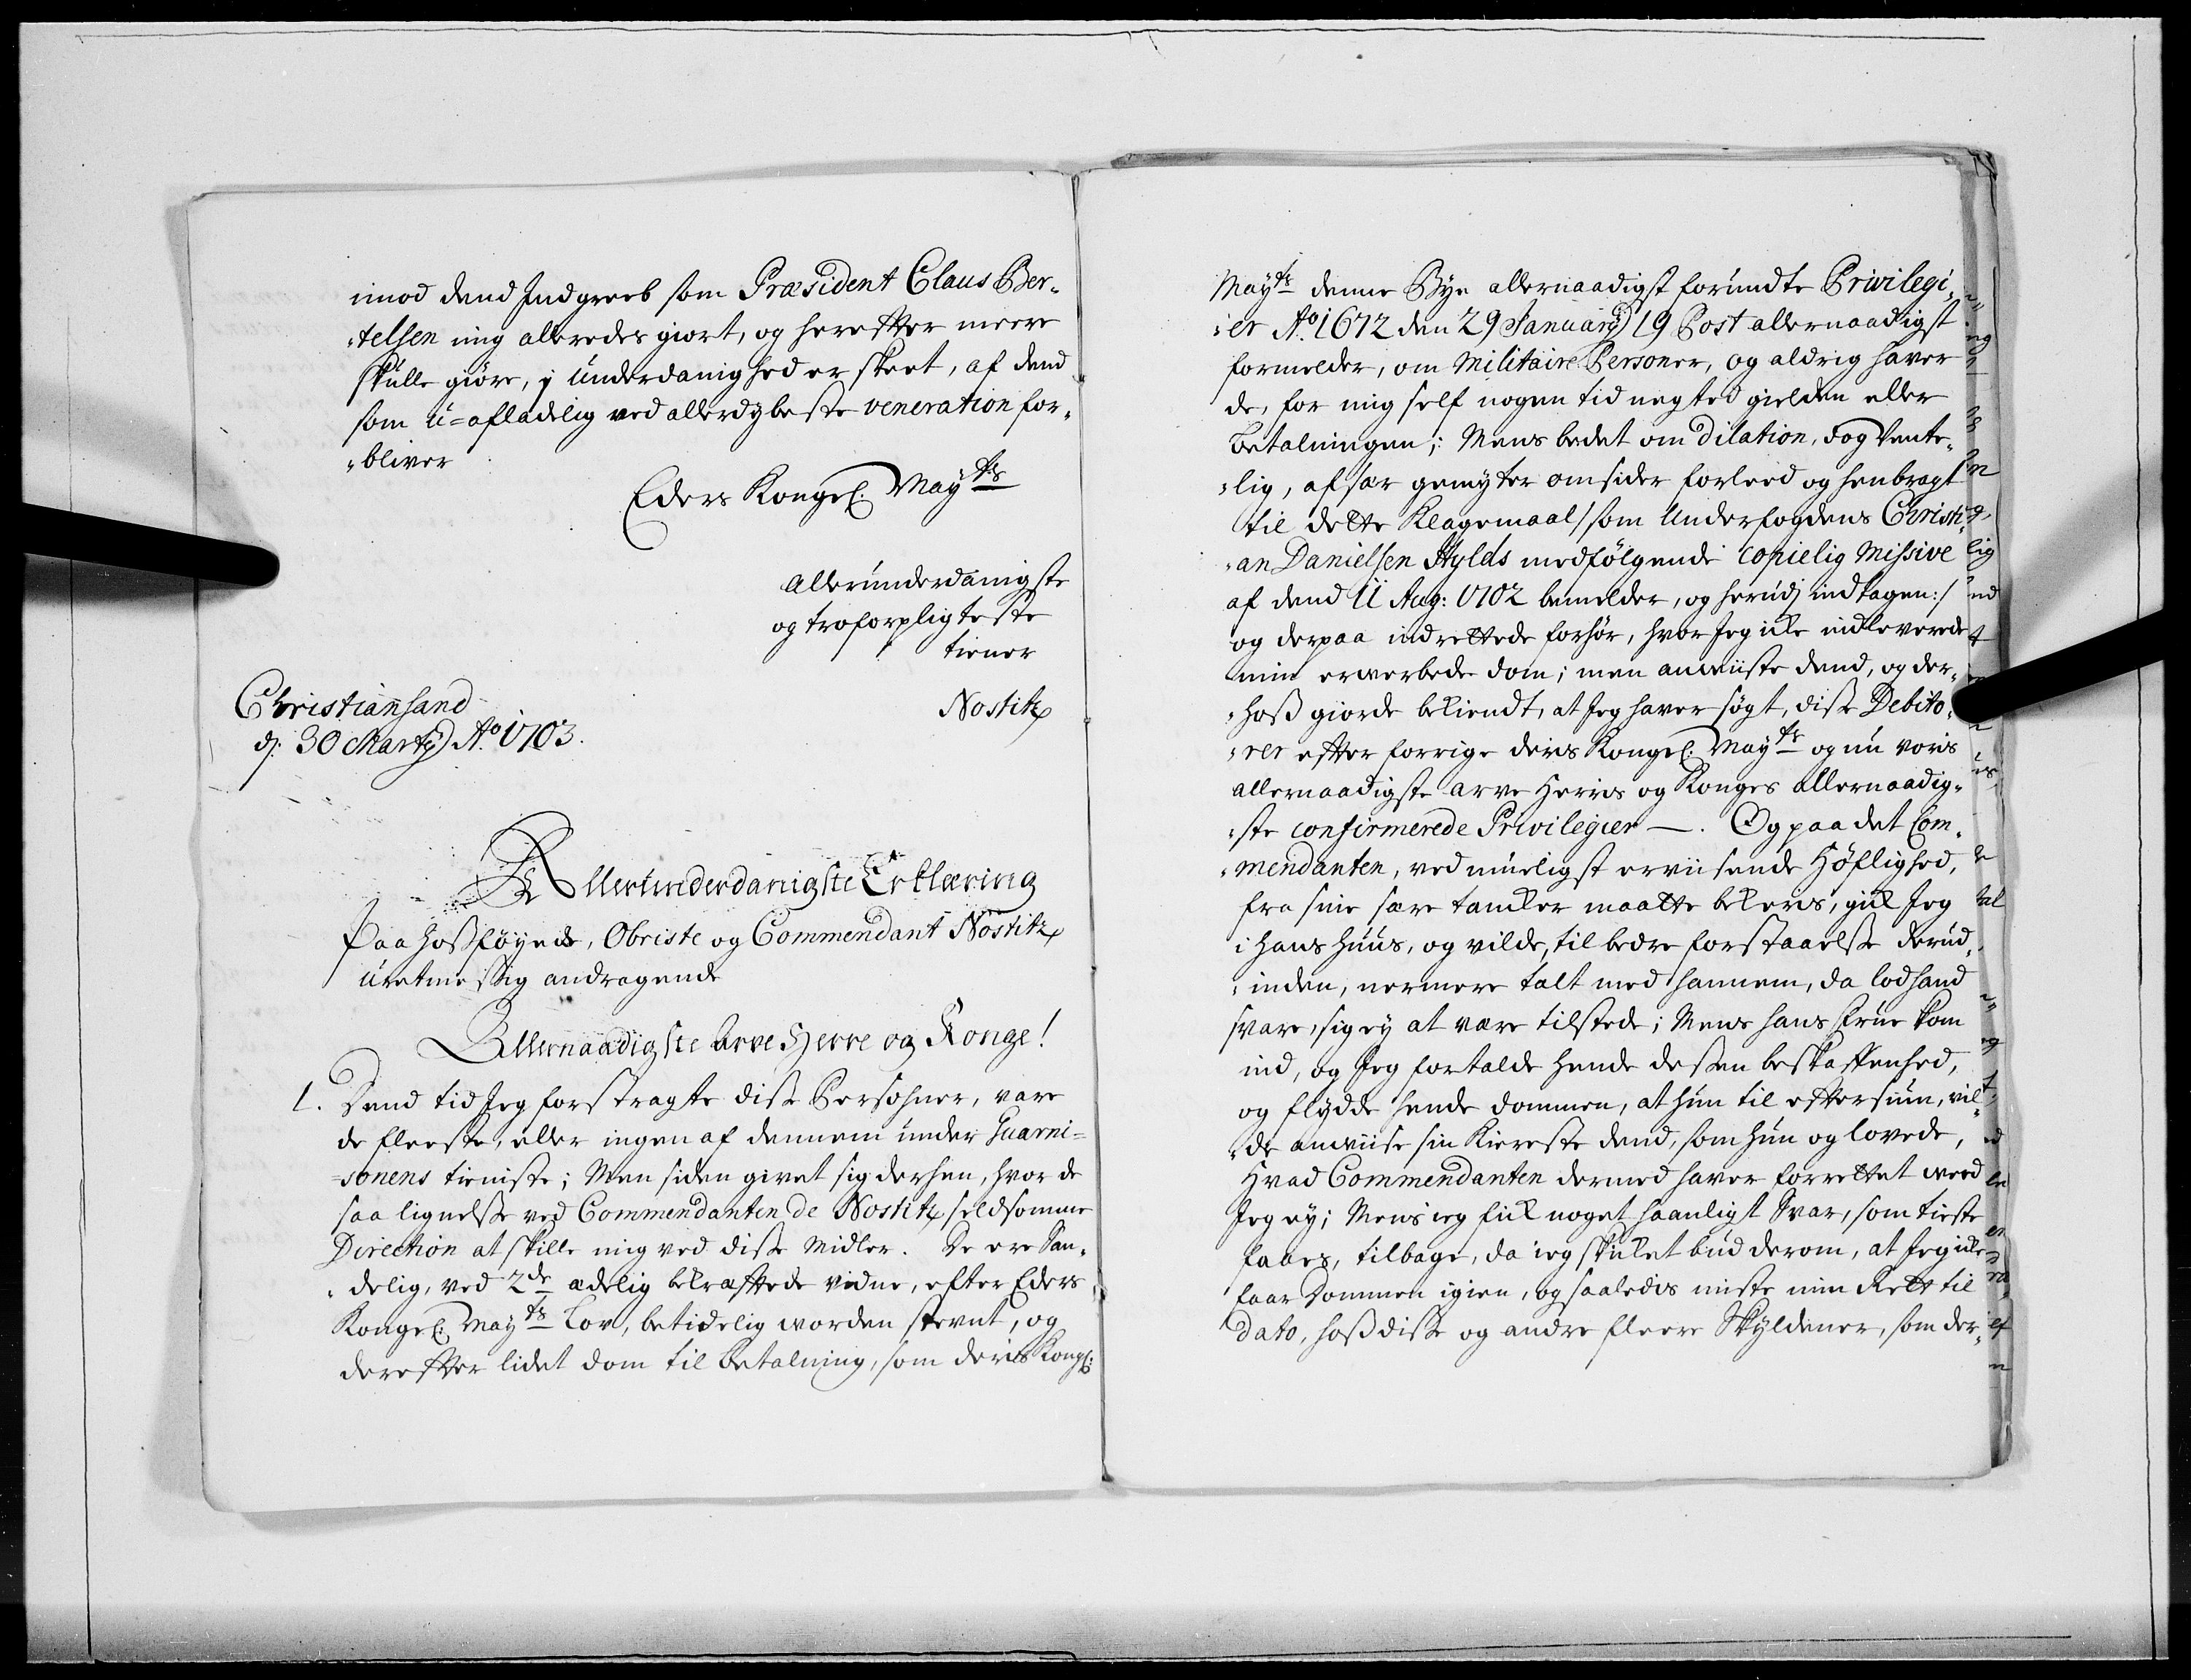 imod dend Indgreeb som Præsident Claus Ber„
„telsen mig allereede giort, og herefter meere
skulle giøre, i underdanighed er skeet, af dend
som u=afladelig ved allerdybeste veneration for„
„bliver
Eders Kongel: Mayts
allerunderdanigste
og troforpligteste
tiener
Nostitz
Christiansand
d: 30 Marty Ao 1703.
Allerunderdanigste Erklæring
Paa hoßføyede, Obriste og Commendant Nostitz
uretmessig andragende
Allernaadigste Arve Herre og Konge!
1. Dend tid Jeg forstragte diße Persohner, vare
de fleeste, eller ingen af dennem under Guarni=
=sonens tieniste; Men siden givet sig derhen, hvor de
saa lignelse ved Commendanten de Nostitz seldsomme
Direction at skille mig ved diße Midler. De ere San„
„delig, ved 2de ædelig bekræftede vidne, efter Eders
Kongel: Mayts Lov, betidelig worden stevnt, og
derefter lidet dom til betalning, som deris Kongl:
Mayts denne Bye allernaadigst forundte Privilegi„
„er Ao 1672 den 29 January 19 Post allernaadigst
formelder, om Militaire Personer, og aldrig haver
de, for mig self nogen tid negted gielden eller
betalningen; Mens bedet om Dilation, dog Vente„
„lig, af sær gemyter omsider forleed og henbragt
til dette Klagemaal /som Underfogdens Christi„
„an Danielsen Stylds medfølgende copielig Missive
af dend 11 Aug: 1702 bemelder, og herudj indtagen:/
og derpaa indrettede forhør, hvor Jeg icke indleverede
min erwerbede dom; men anviiste dend, og der„
„hoß giorde bekiendt, at Jeg haver søgt, diße Debito„
„rer efter forrige deris Kongel: Mayts og nu voris
allernaadigste arve Herris og Konges allernaadig„
„ste confirmerede Privilegier —. Og paa det Com„
„mendanten, ved mueligst erviisende Høflighed,
fra sine sære tancker maatte bekeris, gik Jeg
i hans huus, og vilde, til bedre forstaaelse derud„
„inden, nermere talt med hannem, da lod hand
svare, sig ey at være tilstede; Mens hans Frue kom
ind, og Jeg fortalde hende deßen beskaffenhed,
og flydde hende dommen, at hun til eftersiun, vil„
„de anviise sin Kiereste dend, som hun og lovede,
Hvad Commendanten dermed haver forrettet weed
Jeg ey; Mens ieg fick noget haanligt Svar, som tieste
faaes, tilbage, da ieg skicket bud derom, at Jeg icke
faar Dommen igien, og saaledes miste min Rett til
dato, hoß diße og andre fleere Skyldener, som der„